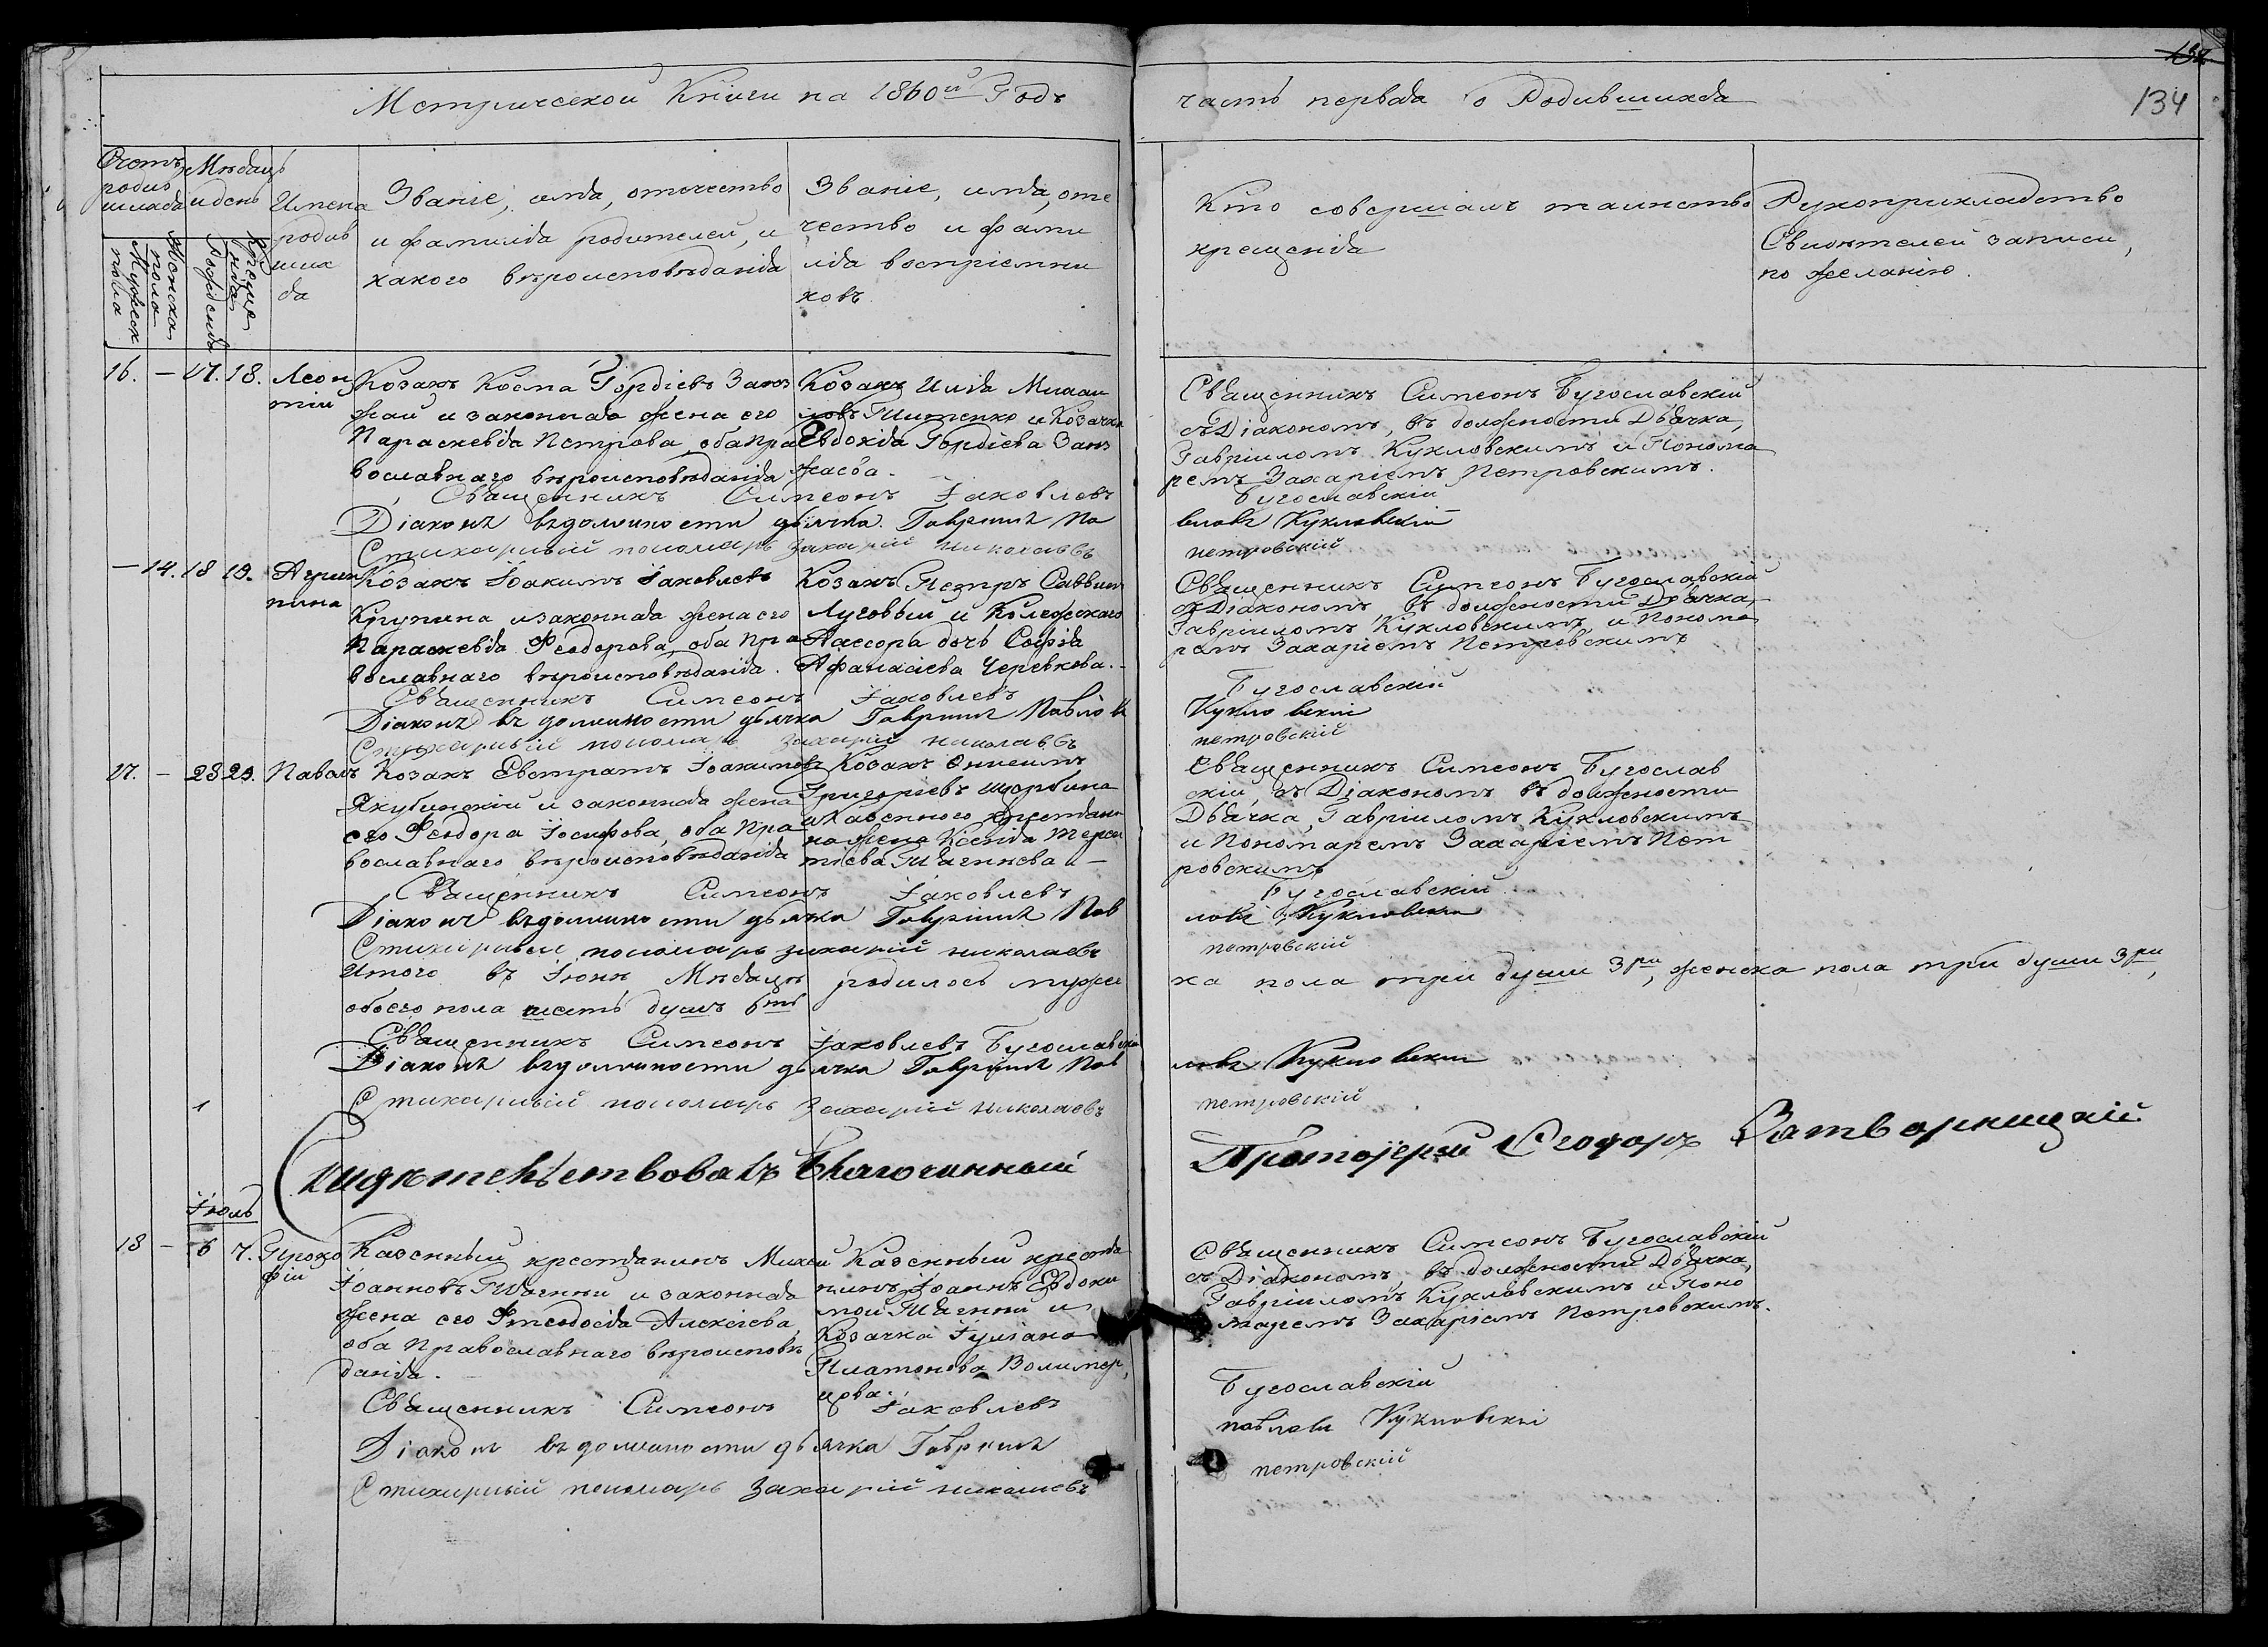 Метрической Книги на 1860й Годъ
часть первая о Родившихся
134
Счетъ родив шихся
Мѣсяцъ и день
Мужеск пола
Женска пола
Рожденія
Крещенія
Имена родив ших ся
Званіе, имя, отчество
и фамилія родителей, и
какого вѣроисповѣданія
Званіе, имя, оте
чество и фами
лія воспріемни
ковъ.
Кто совершалъ таинство
крещенія
Рукоприкладство
Свидѣтелей записи,
по желанію.
16. — 17. 18. Леон
тій
Козакъ Косма Гордіевъ
и законная жена его
Параскевія Петрова, оба пра
вославнаго вѣроисповѣданія
Козакъ Илія Михаи
ловъ Титенко и Козачка
Евдокія Гордіева
Священникъ Симеонъ Бугославскій
съ Діакономъ, въ должности Дьячка,
Гавріиломъ Кукловскимъ и Понома
ремъ Захаріемъ Петровскимъ.
Священникъ Симеонъ Іаковлевъ Бугославскій
Діаконъ въ должности дьячка Гавріилъ Па
вловъ Кукловскій
Стихарный пономарь Захарій Николаевъ петровскій
— 14. 18 19. Агрип
пина
Козакъ Іоакимъ Іаковлевъ
Крупина и законная жена его
Параскевія Феодорова, оба Пра
вославнаго вѣроисповѣданія.
Козакъ Петръ Саввинъ
Луговый и Колежскаго
Ассесора дочь Софія
Афанасіева Черевкова.
Священникъ Симеонъ Бугославскій
съ Діакономъ, въ должности Дьячка,
Гавріиломъ Кукловскимъ, и Понома
ремъ Захаріемъ Петровскимъ
Священникъ Симеонъ Іаковлевъ Бугославскій
Діаконъ въ должности дьячка Гавріилъ Павловъ Кукловскій
Стихарный пономарь Захарій Николаевъ петровскій
17. — 28 29. Павелъ
Козакъ Евстратъ Іоакимовъ
Якубинскій и законная жена
его Феодора Іосифова, оба Пра
вославнаго вѣроисповѣданія
Козакъ Онисимъ
Григоріевъ Щербина
и Казеннаго крестьяни
на жена Ксенія Терен
тіева
Священникъ Симеонъ Бугослав
скій, съ Діакономъ въ должности
Дьячка, Гавріиломъ Кукловскимъ
и Пономаремъ Захаріемъ Пет
ровскимъ
Священникъ Симеонъ Іаковлевъ Бугославскій
Діаконъ въ должности дьячка Гавріилъ Пав
ловъ Кукловскій
Стихарный пономарь Захарій Николаевъ петровскій
Итого въ Іюнѣ Мѣсяцѣ родилось муже
ска пола три души 3ри, женска пола три души 3ри,
обоего пола шесть душъ 6ть
Священникъ Симеонъ Іаковлевъ Бугославскій
Діаконъ въ должности дьячка Гавріилъ Пав
ловъ Кукловскій
Стихарный пономарь Захарій Николаевъ петровскій
Свидѣтельствовалъ Благочинный Протоіерей Феодоръ
Іюль
18 — 6 7. Проко
фій
Казенный крестьянинъ Михей
Іоанновъ и законная
жена его Феодосія Алексіева,
оба Православнаго вѣроисповѣ
данія.
Казенный крестья
нинъ Іоаннъ Евдоки
мов и
Козачка Іуліана
Платонова
Священникъ Симеонъ Бугославскій
съ Діакономъ, въ должности Дьячка,
Гавріиломъ Кукловскимъ и Поно
маремъ Захаріемъ Петровскимъ.
Священникъ Симеонъ Іаковлевъ Бугославскій
Діаконъ въ должности дьячка Гавріилъ павловъ Кукловскій
Стихарный пономарь Захарій Николаевъ петровскій